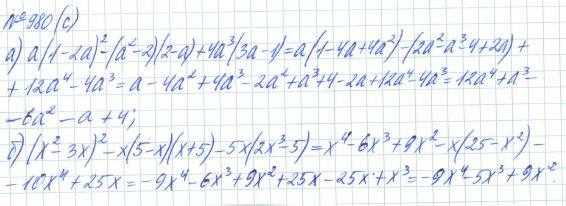 №980 (с)
а) a(1-2a)²-(a²-2)(2-a)+4a³(3a-1)=a(1-4a+4a²)-(2a²-a³-4+2a)+
+12a⁴-4a³=a-4a²+4a³-2a²+a³+4-2a+12a⁴-4a³=12a⁴+a³-
-6a²-a+4;
б) (x²-3x)²-x(5-x)(x+5)-5x(2x³-5)=x⁴-6x³+9x²-x(25-x²)-
-10x⁴+25x=-9x⁴-6x³+9x²+25x-25x+x³=-9x⁴-5x³+9x².